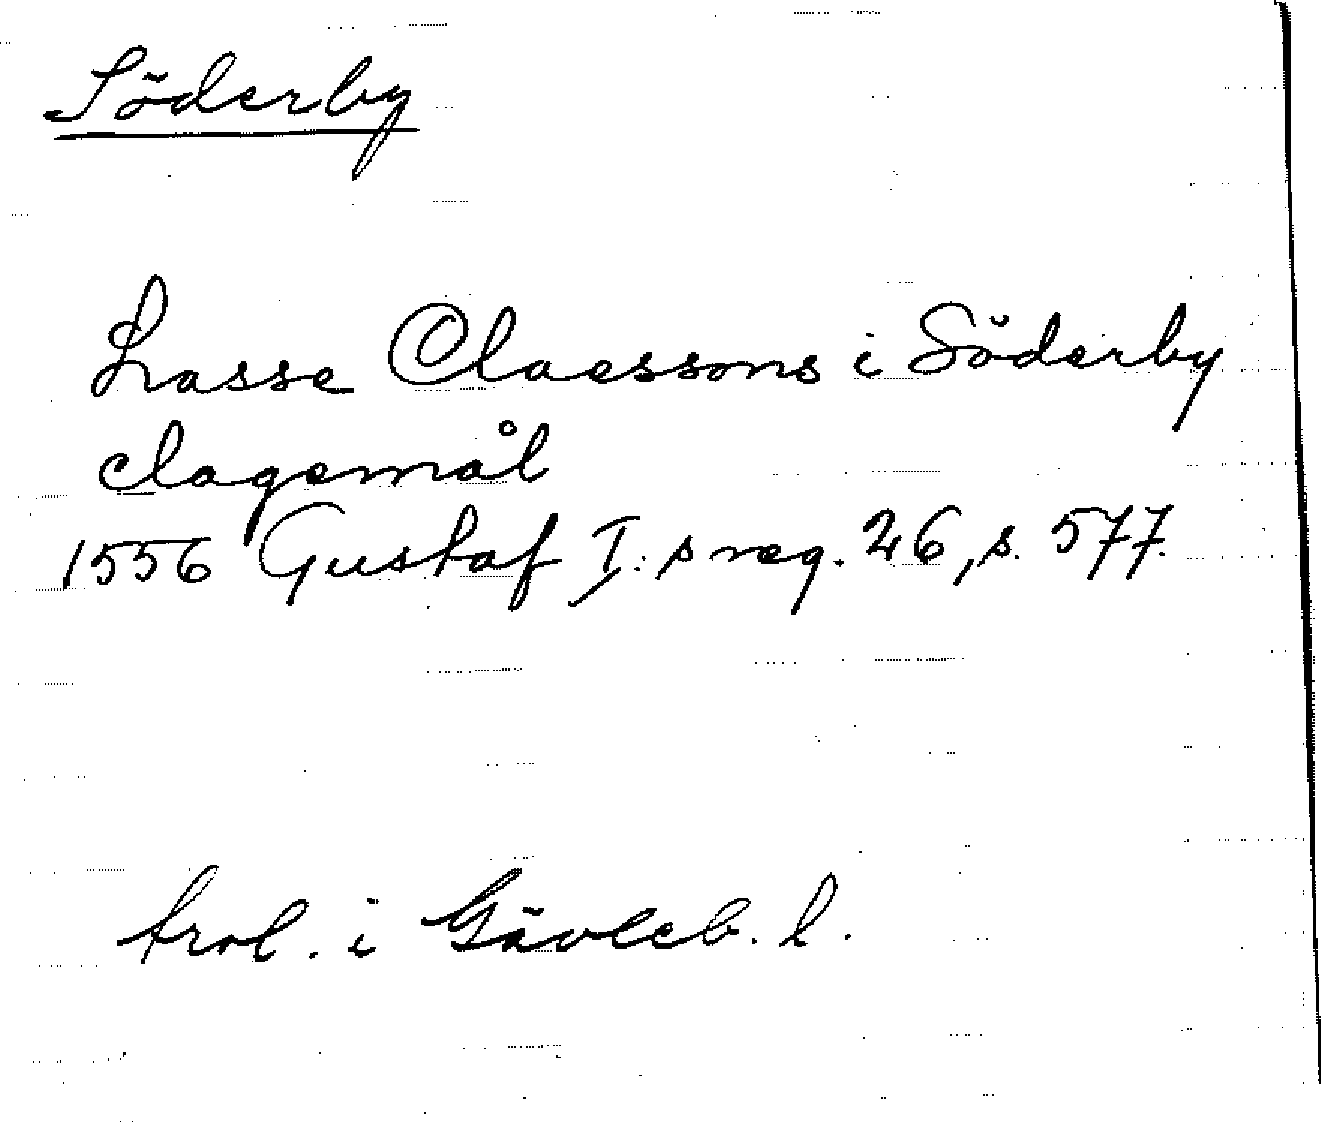 Söderby
Lasse Claessons i Söderby
clagemål
1556 Gustaf I:s reg. 26, s. 577.
trol. i Gävleb. l.